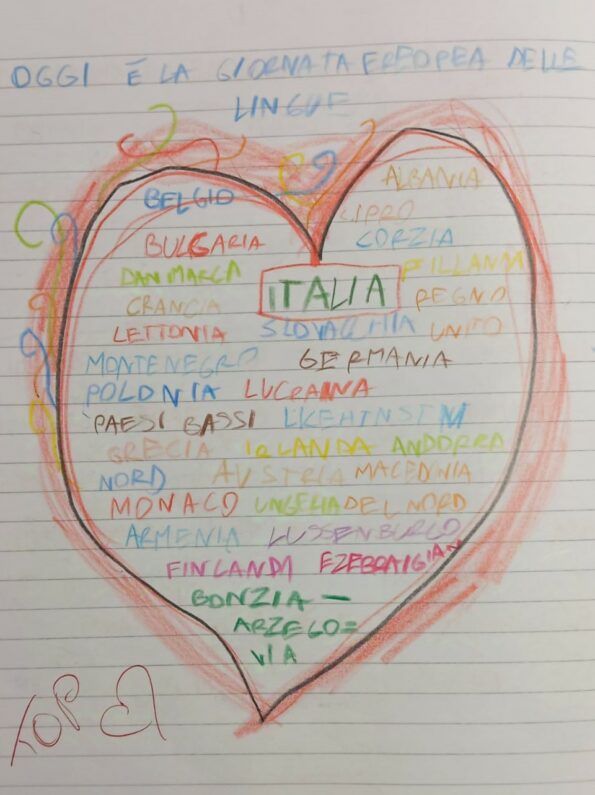 OGGI È LA GIORNATA EREOPEA DELLE
LINGUE
BELGIO ALBANIA
CIPRO
BULGARIA CORZIA
DANIMARCA FILLANDA
ITALIA REGNO
CRANCIA
LETTONIA SLOVACCHIA UNITO
MONTENEGRO GERMANIA
POLONIA LUCRAINA
PAESI BASSI
GRECIA IRLANDA ANDORRA
NORD AUSTRIA MACEDONIA
MONACO UNGELIA DEL NORD
ARMENIA LUSSENBURGO
FINLANDI EZEBRAIGIAN
BONZIA -
ARZEGO=
VIA
TOP